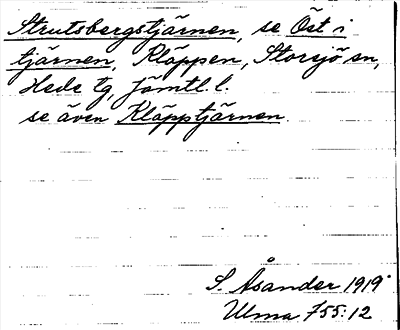 Strutsbergstjärnen, se Öst i
tjärnen, Kläppen, Storsjö sn,
Hede tg, Jämtl. l.
se även Kläpptjärnen.
S. Åsander 1919
Ulma 755:12